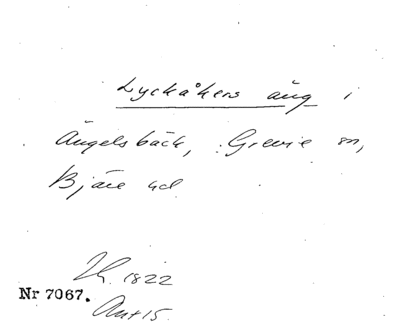 Lyckåkers äng i
Ängelsbäck, Grevie sn,
Bjäre hd
Th. 1822
Nr 7067.
Ant 15